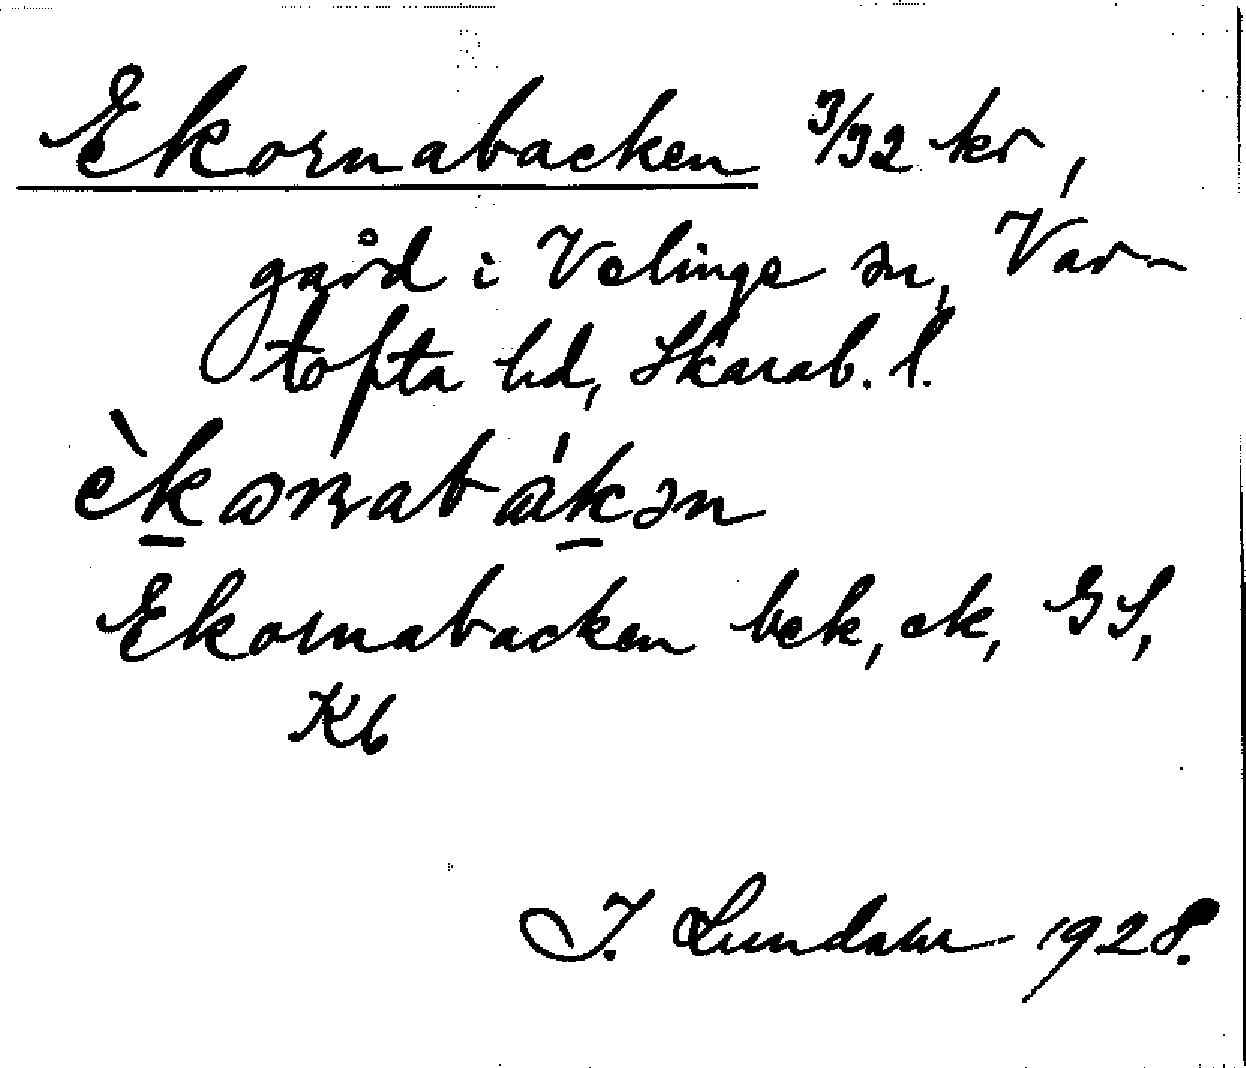 Ekornabacken 3/32 kr,
gård i Velinge sn, Var-
tofta hd, Skarab. l.
Ekornabacken bek, ek, GS,
Kb
I. Lundahl 1928.